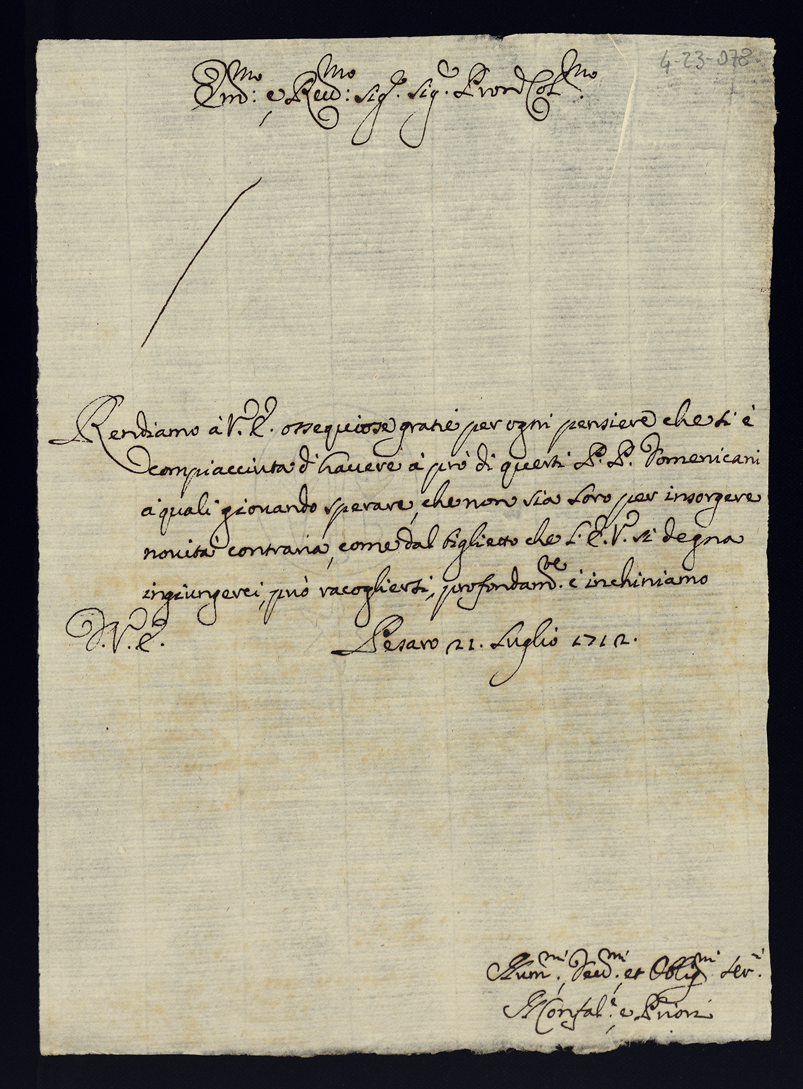 4-23-078
Em:mo e Reu:mo Sig.r Sig.r Pron Col.mo
Rendiamo à V.ra E. ossequiose gratie per ogni pensiere che si è
compiacciuta d'hauere à prò di questi P. P. Domenicani
à quali giouando sperare, che non sia loro per insorgere
nouità contraria, come dal biglietto che l'E. V. si degna
ingiungerci, può racogliersi, profondam.te c'inchiniamo
D. V. E. Pesaro 21. Luglio 1712.
Hum.mi, Deu.mi, et Oblig.mi Ser.i
Il Confal.e e Priori